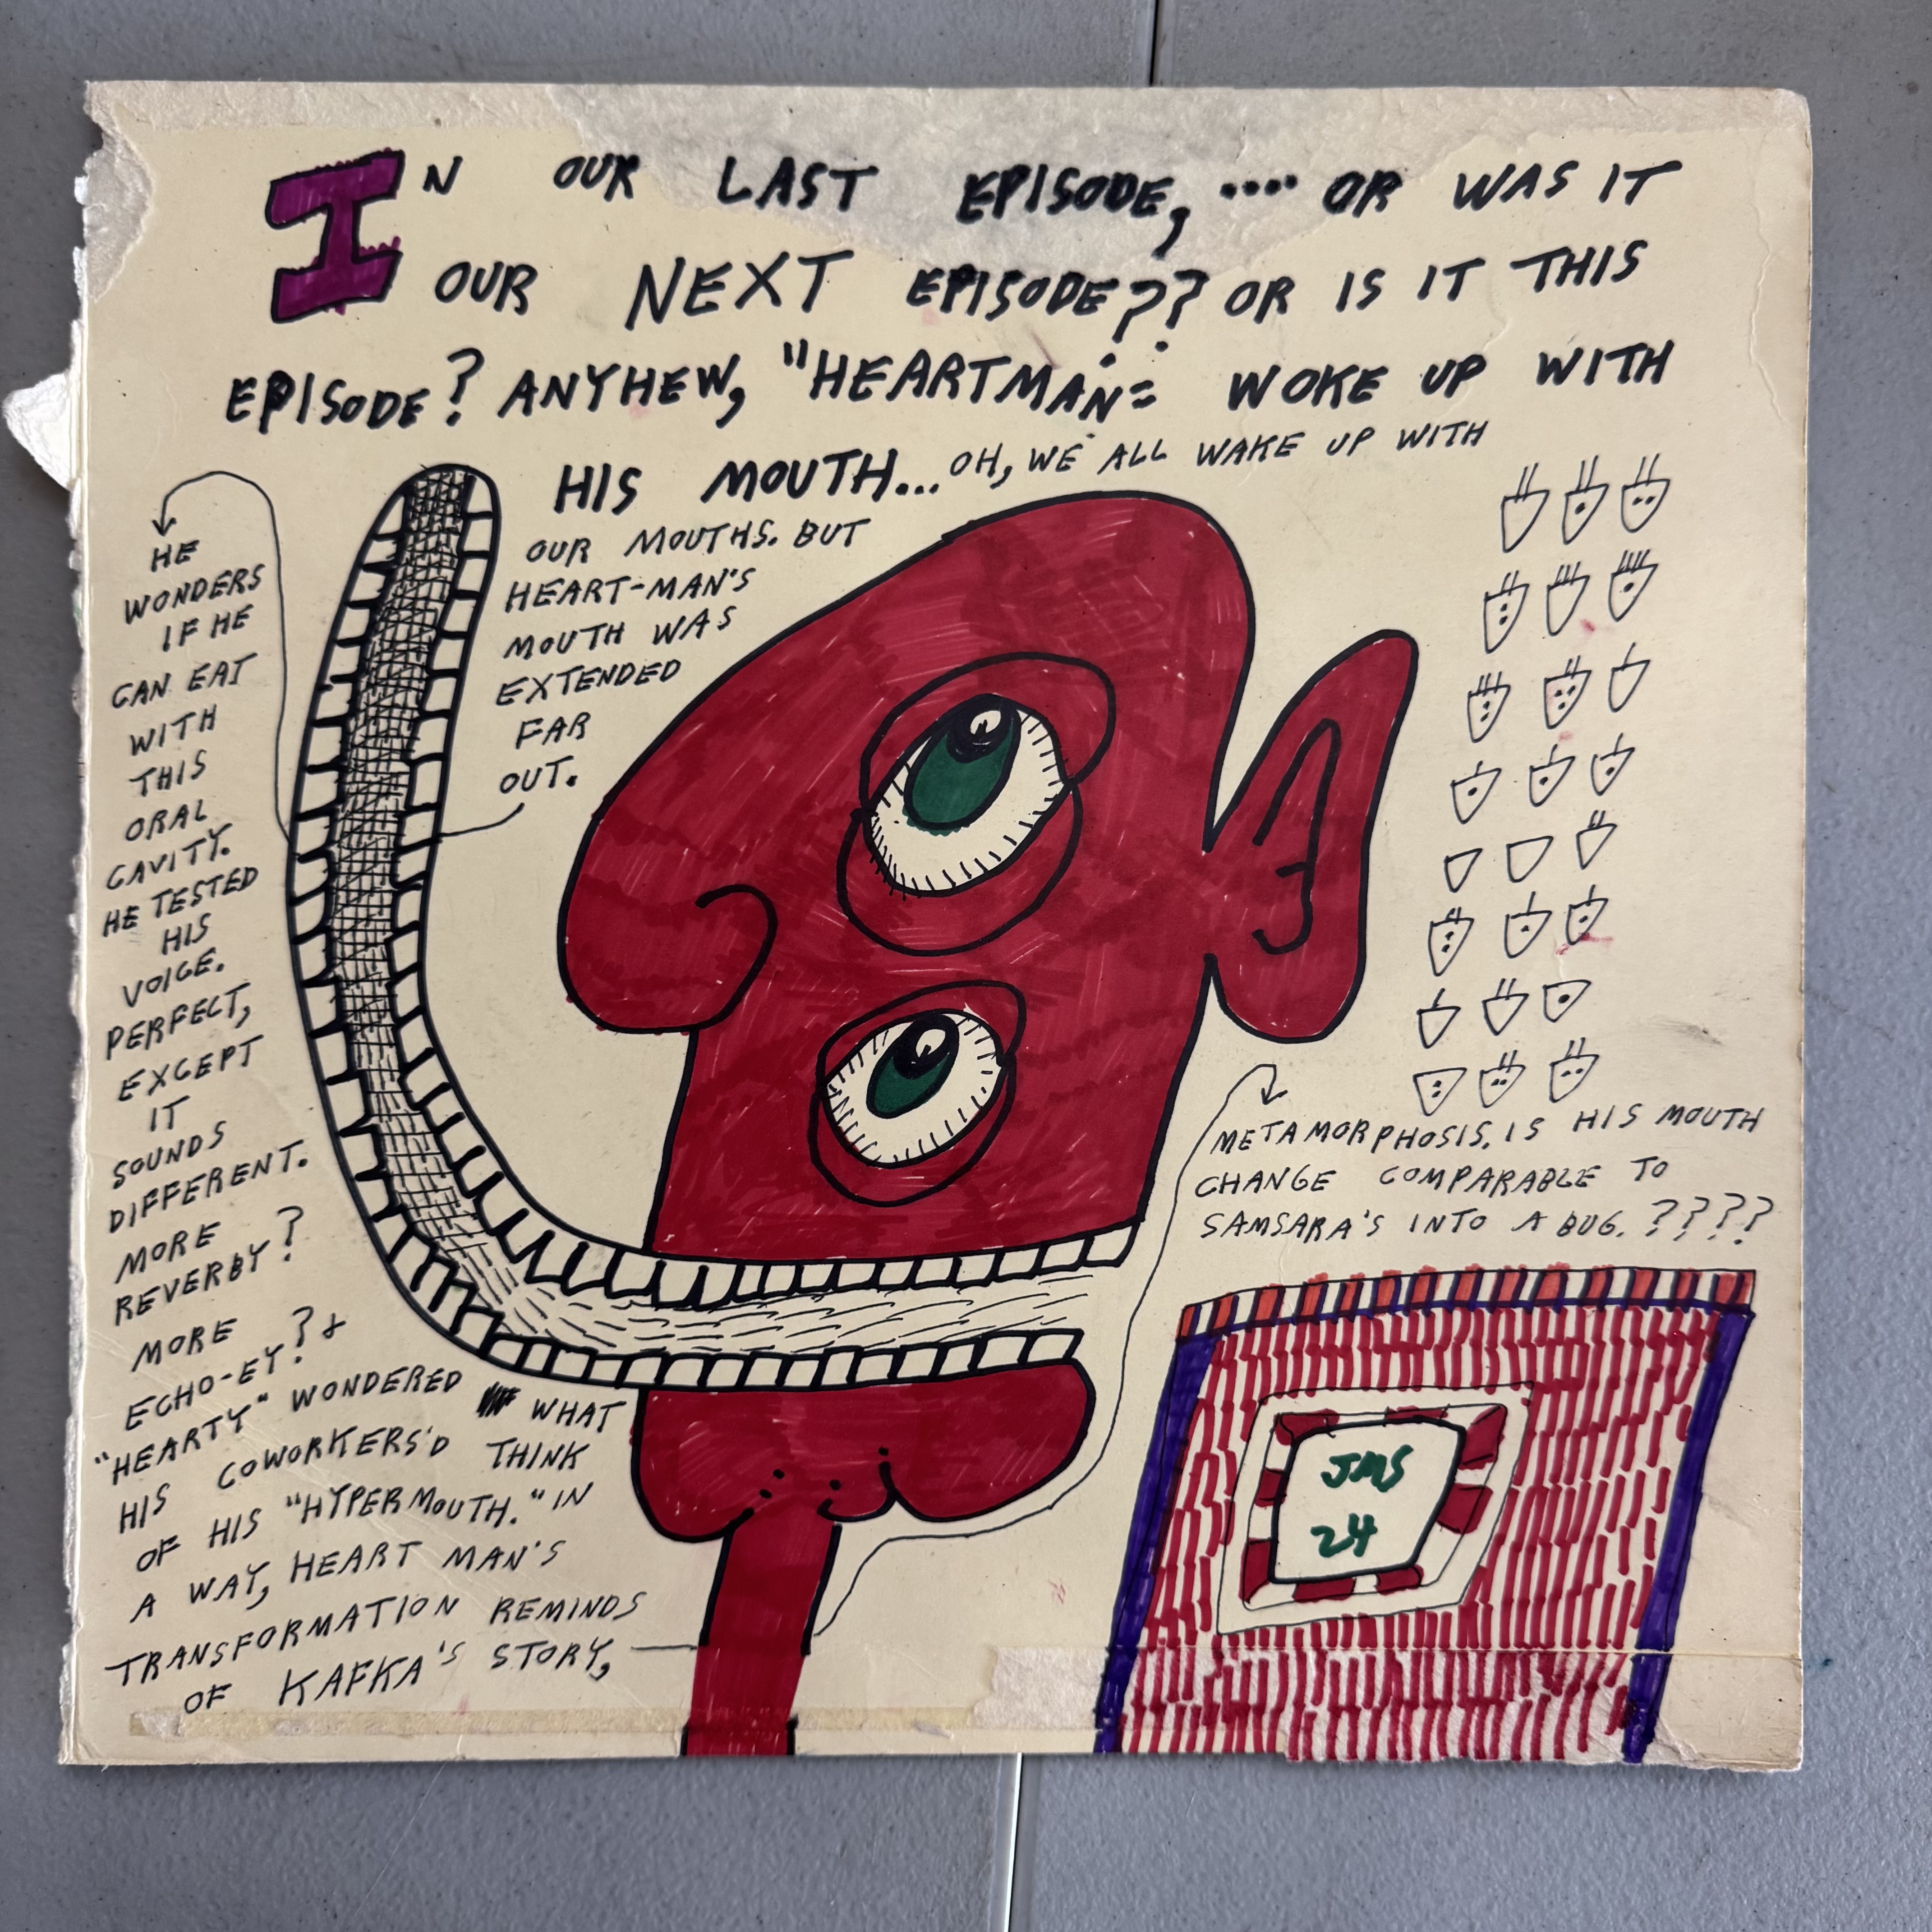 IN OUR LAST EPISODE, .... OR WAS IT
OUR NEXT EPISODE?? OR IS IT THIS
EPISODE? ANYHEW, "HEARTMAN" WOKE UP WITH
HIS MOUTH... OH, WE ALL WAKE UP WITH
OUR MOUTHS. BUT
HEART-MAN'S
MOUTH WAS
EXTENDED
FAR
OUT.
HE
WONDERS
IF HE
CAN EAT
WITH
THIS
ORAL
CAVITY.
HE TESTED
HIS
VOICE.
PERFECT,
EXCEPT
IT
SOUNDS
DIFFERENT.
MORE
REVERBY?
MORE
ECHO-EY? +
"HEARTY" WONDERED WHAT
HIS COWORKERS'D THINK
OF HIS "HYPERMOUTH." IN
A WAY, HEART MAN'S
TRANSFORMATION REMINDS
OF KAFKA'S STORY,
METAMORPHOSIS. IS HIS MOUTH
CHANGE COMPARABLE TO
SAMSARA'S INTO A BUG. ????
JMS
24